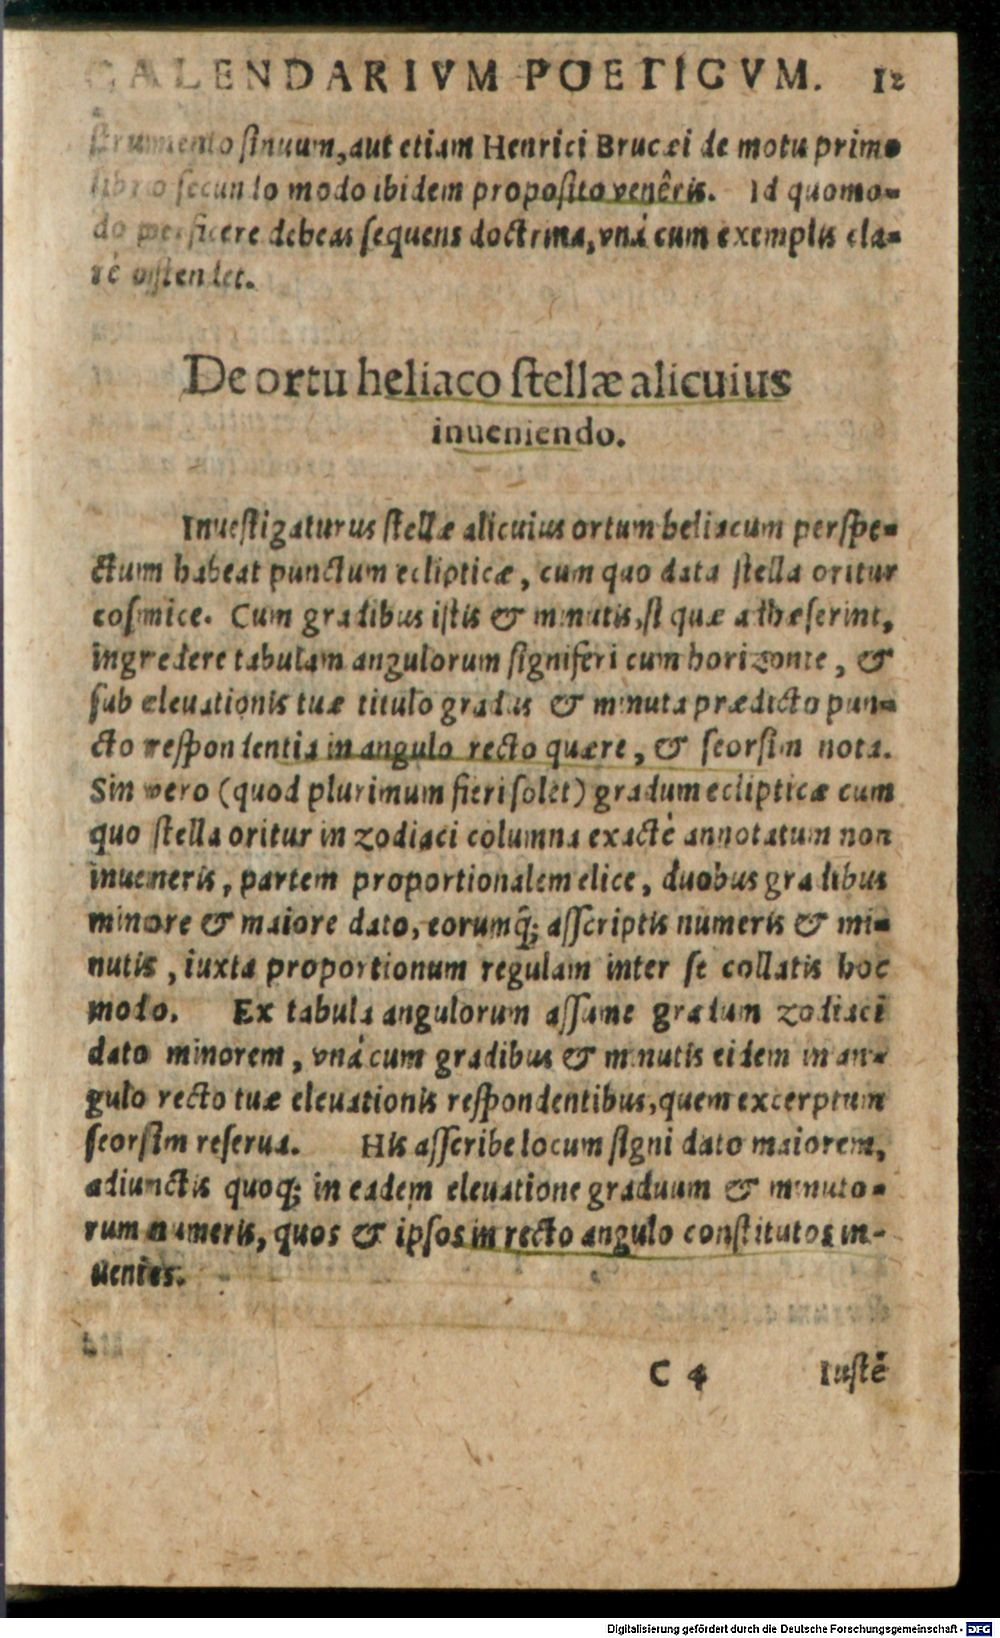 CALENDARIVM POETICVM. 12
ſtrumento ſinuum, aut etiam Henrici Brucæi de motu primo
libro ſecundo modo ibidem propoſito venêris. Id quomo-
do perficere debeas ſequens doctrina, vná cum exemplis cla-
ré oſtendet.
De ortu heliaco ſtellæ alicuius
inueniendo.
Inueſtigaturus ſtellæ alicuius ortum heliacum perſpe-
ctum habeat punctum eclipticæ, cum quo data ſtella oritur
coſmice. Cum gradibus iſtis & minutis, ſi quæ adhæſerint,
ingredere tabulam angulorum ſigniferi cum horizonte, &
ſub eleuationis tuæ titulo gradus & minuta prædicto pun-
cto reſpondentia in angulo recto quære, & ſeorſim nota.
Sin vero (quod plurimum fieri ſolet) gradum eclipticæ cum
quo ſtella oritur in zodiaci columna exacté annotatum non
inueneris, partem proportionalem elice, duobus gradibus
minore & maiore dato, eorumq̃; aſſcriptis numeris & mi-
nutis, iuxta proportionum regulam inter ſe collatis hoc
modo. Ex tabula angulorum aſſume gradum zodiaci
dato minorem, vná cum gradibus & minutis eidem in an-
gulo recto tuæ eleuationis reſpondentibus, quem excerptum
ſeorſim reſerua. His aſſcribe locum ſigni dato maiorem,
adiunctis quoq; in eadem eleuatione graduum & minuto-
rum numeris, quos & ipſos in recto angulo conſtitutos in-
uenies.
C 4 Iuſté